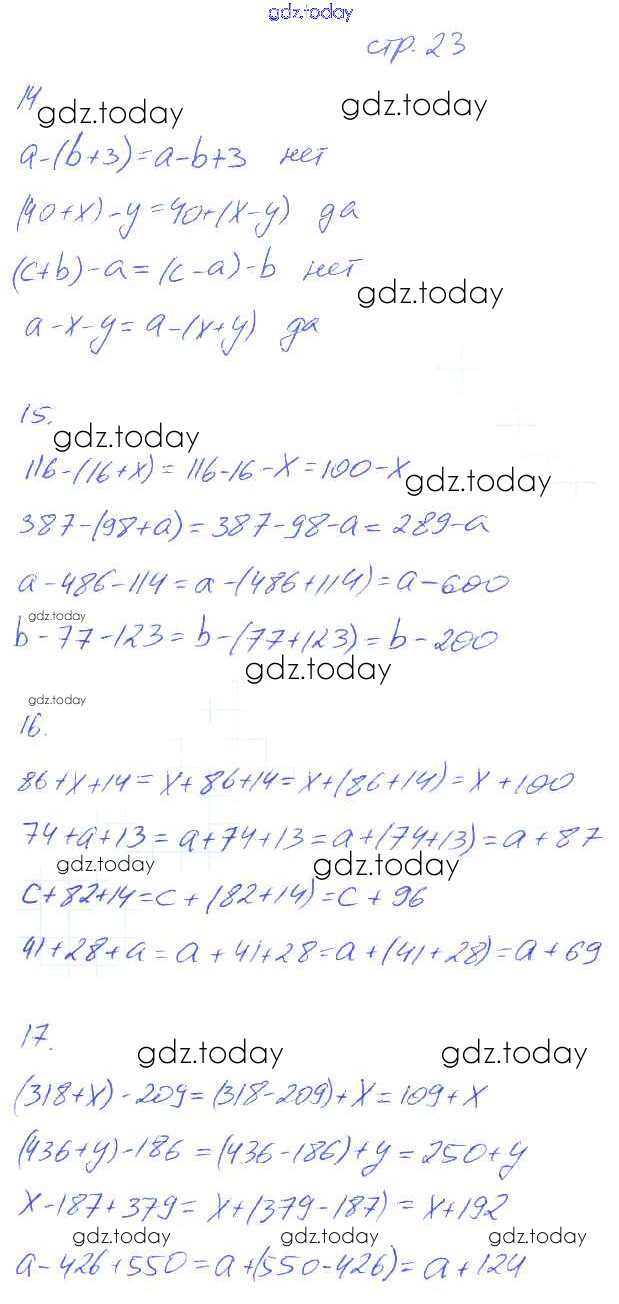 gdz.today
стр. 23
14
gdz.today gdz.today
a-(b+3)=a-b+3 нет
(40+x)-y=40+(x-y) да
(c+b)-a=(c-a)-b нет
gdz.today
a-x-y=a-(x+y) да
15.
gdz.today
116-(16+x)=116-16-x=100-x
gdz.today
387-(98+a)=387-98-a=289-a
a-486-114=a-(486+114)=a-600
gdz.today
b-77-123=b-(77+123)=b-200
gdz.today
gdz.today
16.
86+x+14=x+86+14=x+(86+14)=x+100
74+a+13=a+74+13=a+(74+13)=a+87
gdz.today gdz.today
c+82+14=c+(82+14)=c+96
41+28+a=a+41+28=a+(41+28)=a+69
17.
gdz.today gdz.today
(318+x)-209=(318-209)+x=109+x
(436+y)-186=(436-186)+y=250+y
x-187+379=x+(379-187)=x+192
gdz.today gdz.today gdz.today
a-426+550=a+(550-426)=a+124